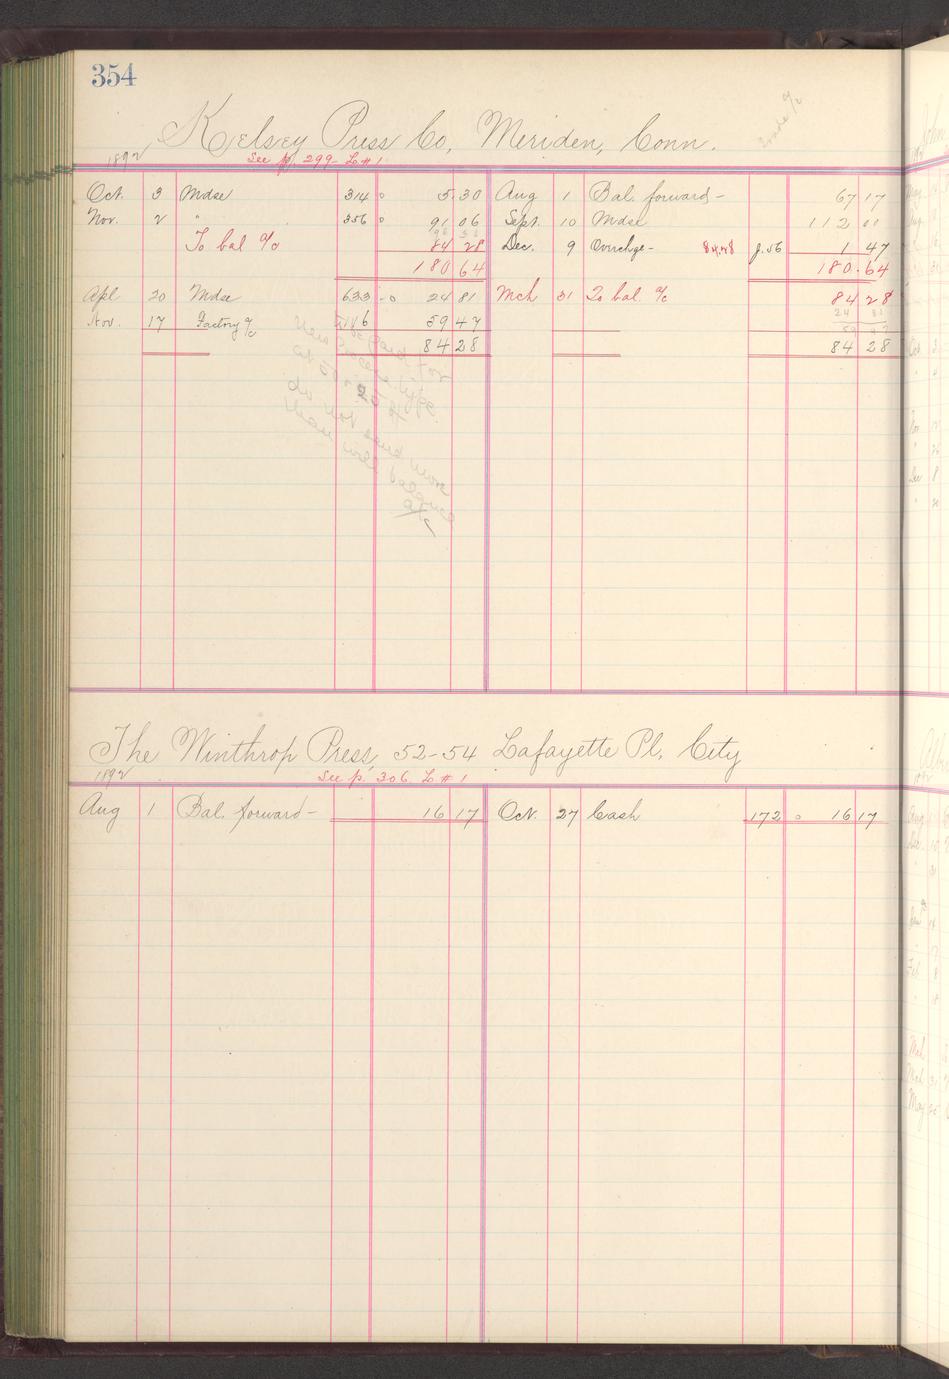 354
Kelsey Press Co, Meriden, Conn.
Trade a/c
1892 See p. 299 L # 1
Oct. 3 Mdse 314 o 5.30 Aug 1 Bal. forward — 67 17
Nov. 2 " 356 o 91 06 Sept. 10 Mdse 112 00
96 36
To bal a/c 84 28 Dec. 9 Overchge — 84.28 J. 56 1 47
180 64 180.64
Apl 20 Mdse 633 - o 24 81 Mch 31 To bal. a/c 84 28
24 81
Nov. 17 Factory a/c 59 47
59 47
84 28 84 28
New
at
do not send more
than will balance
a/c
The Winthrop Press, 52-54 Lafayette Pl, City
1892 See p. 306 L # 1
Aug 1 Bal. forward — 16 17 Oct. 27 Cash 172 o 16 17